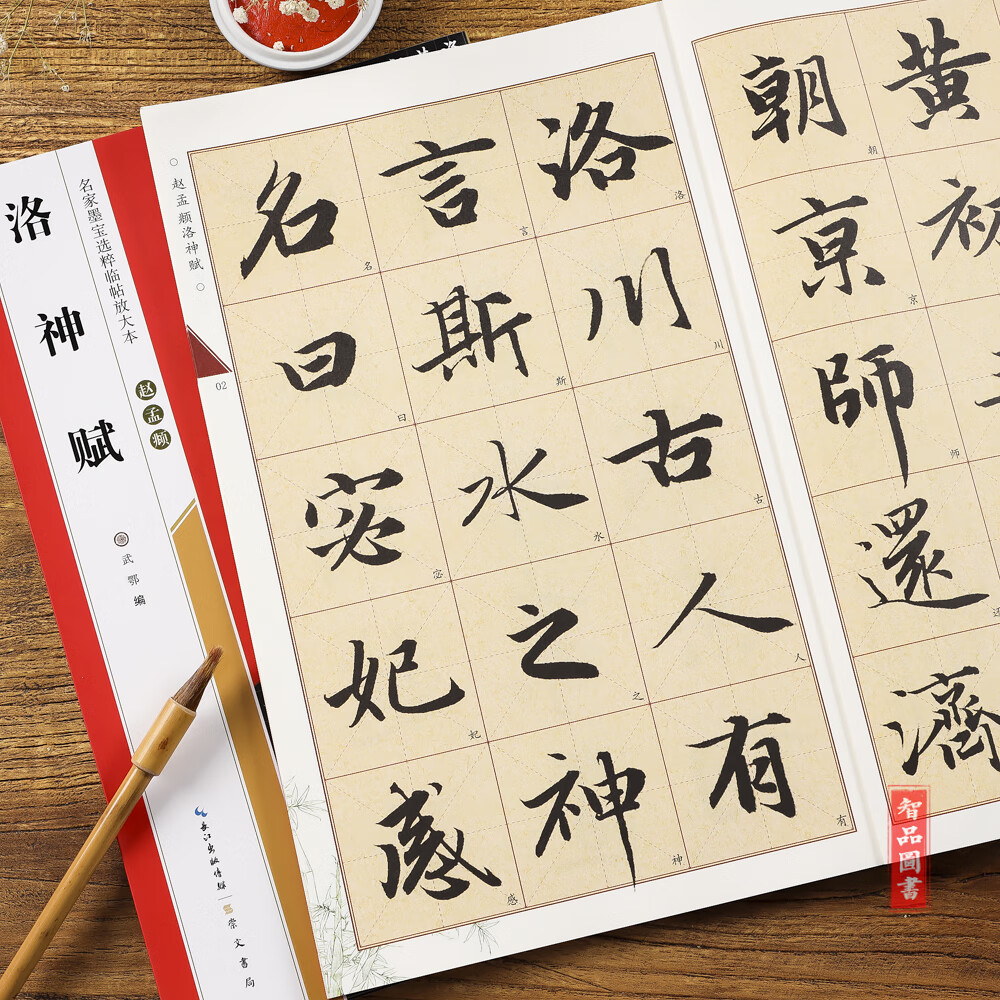 洛神赋
名家墨宝选粹临帖放大本
赵孟𫖯
武鄂编
长江出版传媒
崇文书局
赵孟𫖯洛神赋
02
黄初
朝京師還濟
朝京师还
洛川古人有
洛川古人有
言斯水之神
言斯水之神
名曰宓妃感
名曰宓妃感
智品圖書